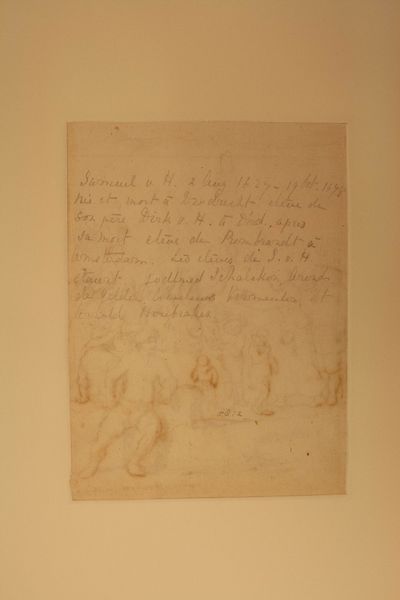 Samuel v. H. 2 Aug 1627 - 19 Oct. 1678
né et mort à Dordrecht élève de
son père Dirk v. H. à Dod. après
sa mort élève de Rembrandt à
Amsterdam. Les élèves de S. v H
étaient Godfried Schalcken, Arend
de Gelder, Cornelis
Arnold Houbraken